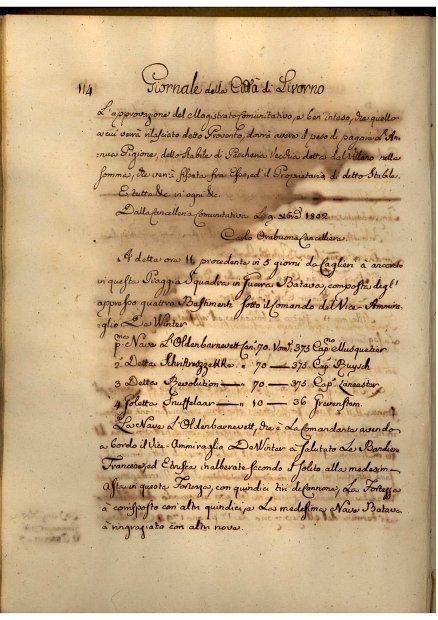 114 Giornale della Città di Livorno
L'approvazione del Magistrato Comunitativo, e ben inteso, che quello
a cui verrà rilasciato detto Provento, dovrà avere il peso di pagare l'An-
nua Pigione, dello Stabile di Pescheria Vecchia detta dal Villano nella
somma, che verrà fissata fra Esso, ed il Proprietario di detto Stabile.
E tutto &c in ogni &c.
Dalla Cancelleria Comunitativa Li 9. Xbre 1802
Carlo Orsibuoni Cancelliere
A dette ora 11 procedente in 5 giorni da Caglieri à ancorato
in questa Piaggia Squadra in Guerra Batava, composta degl'
appresso quattro Bastimenti sotto il Comando del Vice-Ammira-
glio De Winter
pmo Nave L'Oldenbarnevett Can. 70. Uom. 375 Capno Musquetier
2 Detta — 70 — 375 Cap. Ruysch
3 Detta Revolution — 70 — 375 Cap. Lancester
4 Goletta Snuffelaar — 10 — 36 Grevenstem.
La Nave L'Oldenbarnevett, che è La Comandante avendo
a bordo il Vice-Ammiraglio De Winter à salutato Le Bandiere
Francese, ed Etrusca inalberate secondo il solito alla medesim-
Asta in questa Fortezza, con quindici tiri di Cannone, La Fortezza
à corrisposto con altri quindici, e La medesima Nave Batava
à ringraziato con altri nove.